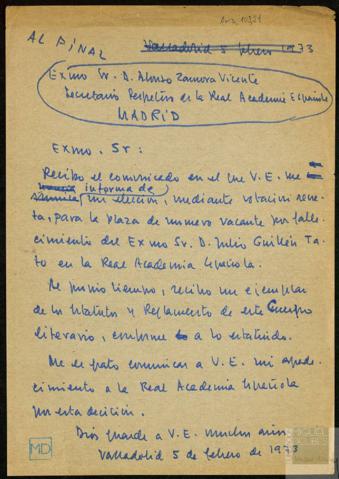 AL FINAL
Valladolid 5 febrero 1973
Exmo Sr. D. Alonso Zamora Vicente
Secretario Perpetuo de la Real Academia Española
MADRID
Exmo. Sr:
Recibo el comunicado en el que V.E. me
informa de
mi elección, mediante votación secre-
ta, para la plaza de numero vacante por falle-
cimiento del Exmo Sr. D. Julio Guillén Ta-
to en la Real Academia Española.
Al mismo tiempo, recibo un ejemplar
de los Estatutos y Reglamento de este Cuerpo
literario, conforme a lo estatuido.
Me es grato comunicar a V.E. mi agrade-
cimiento a la Real Academia Española
por esta decisión.
Dios guarde a V.E. muchos años
Valladolid 5 de febrero de 1973
MD